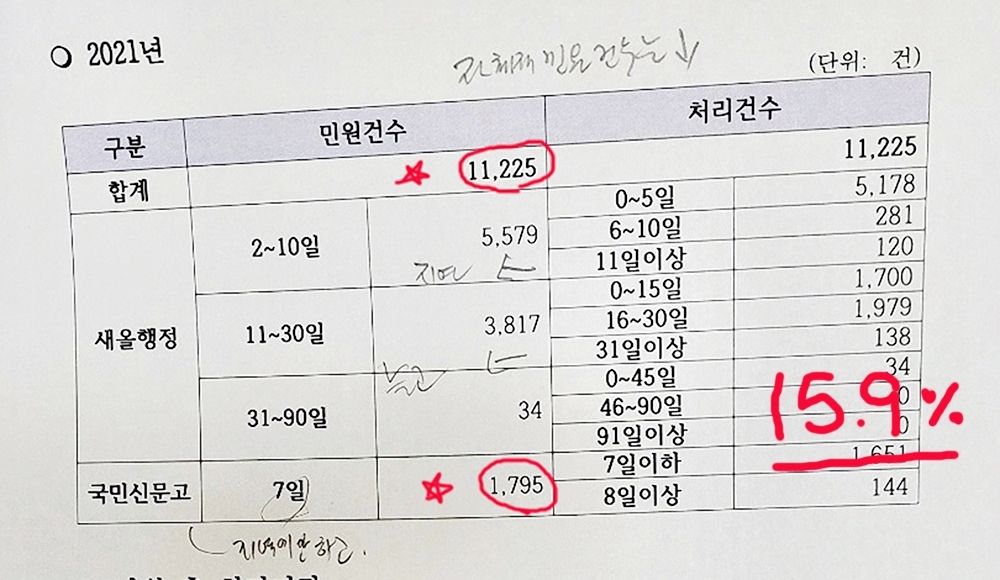 ○ 2021년
건수는 ↓
(단위: 건)
구분 민원건수 처리건수
합계 ★ 11,225 11,225
새올행정 2~10일 5,579 0~5일 5,178
6~10일 281
11일이상 120
11~30일 3,817 0~15일 1,700
16~30일 1,979
31일이상 138
31~90일 34 0~45일 34
46~90일 0
91일이상 0
국민신문고 7일 ★ 1,795 7일이하 1,651
8일이상 144
15.9%